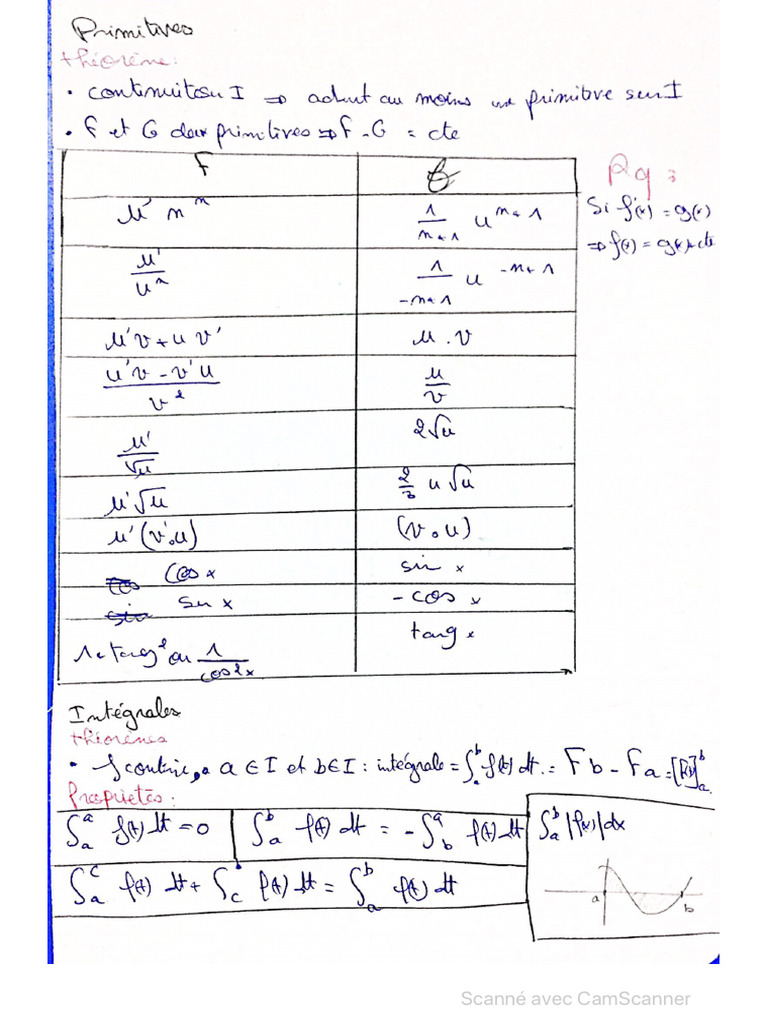 Primitives
théorème:
• continuité sur I => admet au moins une primitive sur I
• F et G deux primitives => F - G = cte
f
Rq :
Si f'(x) = g'(x)
=> f(x) = g(x) + cte
u' u^n
1/(n+1) u^(n+1)
u'/u^n
1/(-n+1) u^(-n+1)
u'v + u v'
u . v
(u'v - v'u)/v²
u/v
u'/√u
2√u
u'√u
2/3 u √u
u'(v'∘u)
(v∘u)
cos x
sin x
sin x
-cos x
1 + tang² ou 1/cos²x
tang x
Intégrales
théorèmes
• f continue, a ∈ I et b ∈ I : intégrale = ∫_a^b f(t) dt. = Fb - Fa = [F(x)]_a^b
Propriétés :
∫_a^a f(t) dt = 0
∫_a^b f(t) dt = - ∫_b^a f(t) dt
∫_a^b |f(x)| dx
∫_a^c f(t) dt + ∫_c^b f(t) dt = ∫_a^b f(t) dt
a
b
Scanné avec CamScanner